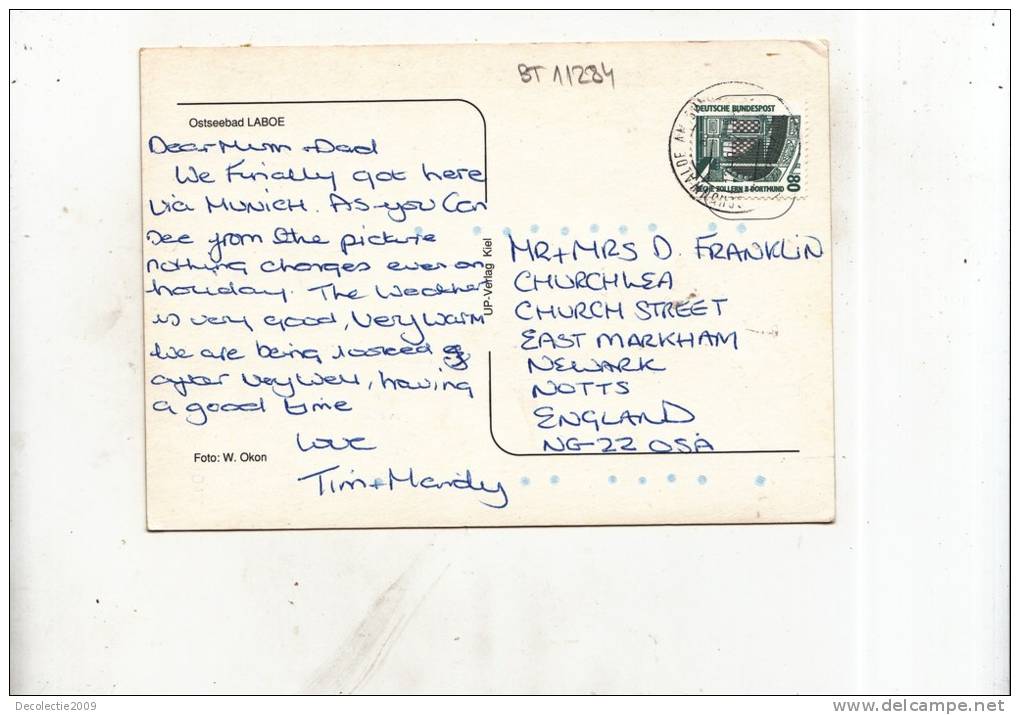 BT 11284
Ostseebad LABOE
Dear Mum + Dad
We Finially got here
via MUNICH. As you Can
see from the picture
nothing changes even on
holiday. The Weather
is very good, very warm
We are being looked
after very well, having
a good time
Love
Tim + Mandy
Foto: W. Okon
UP-Verlag Kiel
DEUTSCHE BUNDESPOST
80
ZECHE ZOLLERN II · DORTMUND
MR + MRS D. FRANKLIN
CHURCH LEA
CHURCH STREET
EAST MARKHAM
NEWARK
NOTTS
ENGLAND
NG22 0SA
Decolectie2009
delcampe.net